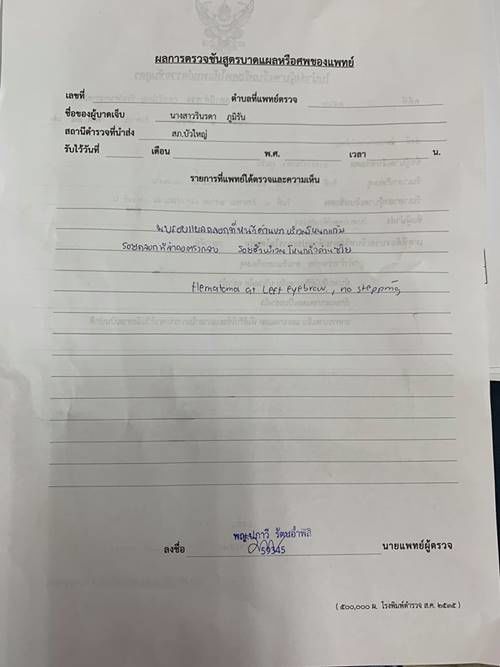 ผลการตรวจชันสูตรบาดแผลหรือศพของแพทย์
เลขที่ ตำบลที่แพทย์ตรวจ
ชื่อของผู้บาดเจ็บ นางสาววรินรดา ภูมิรัน
สถานีตำรวจที่นำส่ง สภ.บัวใหญ่
รับไว้วันที่ เดือน พ.ศ. เวลา น.
รายการที่แพทย์ได้ตรวจและความเห็น
พบรอยแผลถลอกที่หน้า บริเวณโหนกแก้ม
รอยถลอกที่ รอยช้ำบริเวณโหนกคิ้วด้านซ้าย
Hematoma at Left eyebrow, no stepping
ลงชื่อ 59345 นายแพทย์ผู้ตรวจ
( ๕๐๐,๐๐๐ ผ. โรงพิมพ์ตำรวจ ส.ค. ๒๕๓๕ )